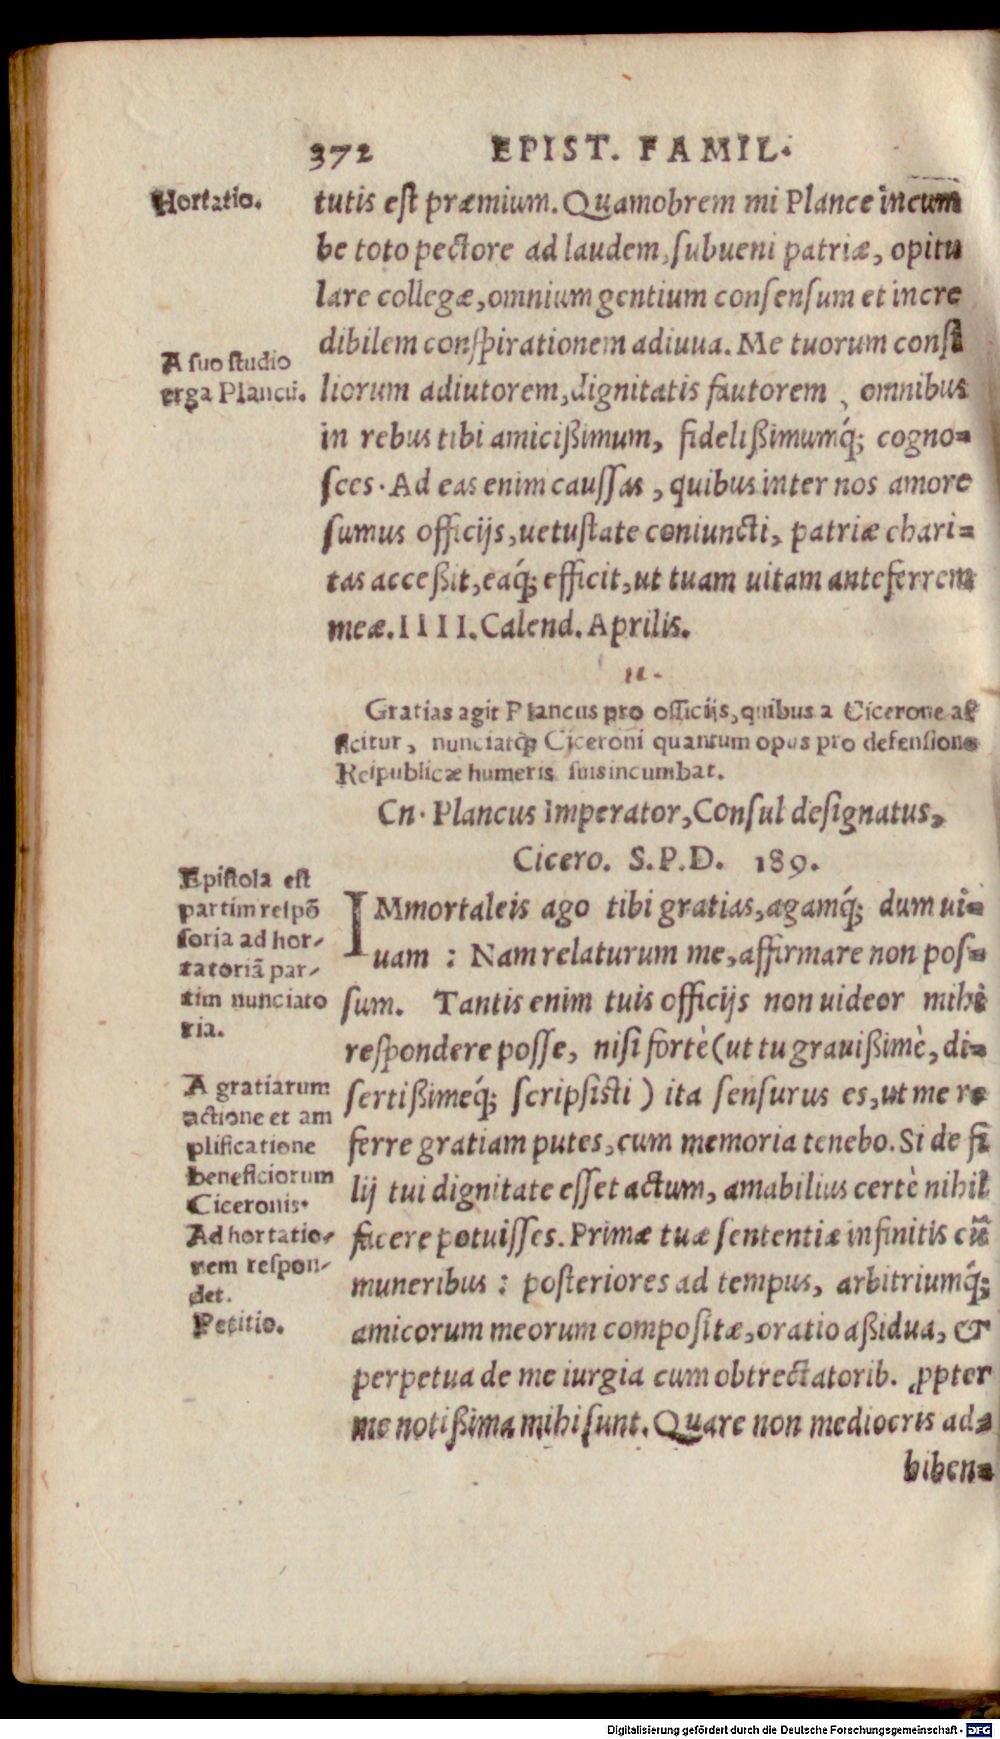 372 EPIST. FAMIL.
Hortatio.
tutis est præmium. Quamobrem mi Plance incum
be toto pectore ad laudem, subueni patriæ, opitu
lare collegæ, omnium gentium consensum et incre
dibilem conspirationem adiuua. Me tuorum consi
A suo studio
erga Plancũ.
liorum adiutorem, dignitatis fautorem, omnibus
in rebus tibi amicißimum, fidelißimumq́; cogno-
sces. Ad eas enim caussas, quibus inter nos amore
sumus officijs, uetustate coniuncti, patriæ chari-
tas acceßit, eaq́; efficit, ut tuam uitam anteferrem
meæ. IIII. Calend. Aprilis.
11.
Gratias agit Plancus pro officijs, quibus a Cicerone af
ficitur, nunciatq́; Ciceroni quantum opus pro defensione
Reipublicæ humeris suis incumbat.
Cn. Plancus Imperator, Consul designatus,
Cicero. S.P.D. 189.
Epistola est
partim respõ
soria ad hor-
tatoriã par-
tim nunciato
ria.
IMmortaleis ago tibi gratias, agamq́; dum ui-
uam: Nam relaturum me, affirmare non pos-
sum. Tantis enim tuis officijs non uideor mihi
respondere posse, nisi fortè (ut tu grauißimè, di-
A gratiarum
actione et am
plificatione
beneficiorum
Ciceronis.
sertißimeq́; scripsisti) ita sensurus es, ut me re
ferre gratiam putes, cum memoria tenebo. Si de fi
lij tui dignitate esset actum, amabilius certè nihil
facere potuisses. Primæ tuæ sententiæ infinitis cũ
Ad hortatio-
nem respon-
det.
Petitio.
muneribus: posteriores ad tempus, arbitriumq́;
amicorum meorum compositæ, oratio aßidua, &
perpetua de me iurgia cum obtrectatorib. ꝓpter
me notißima mihi sunt. Quare non mediocris ad-
biben-
Digitalisierung gefördert durch die Deutsche Forschungsgemeinschaft - DFG